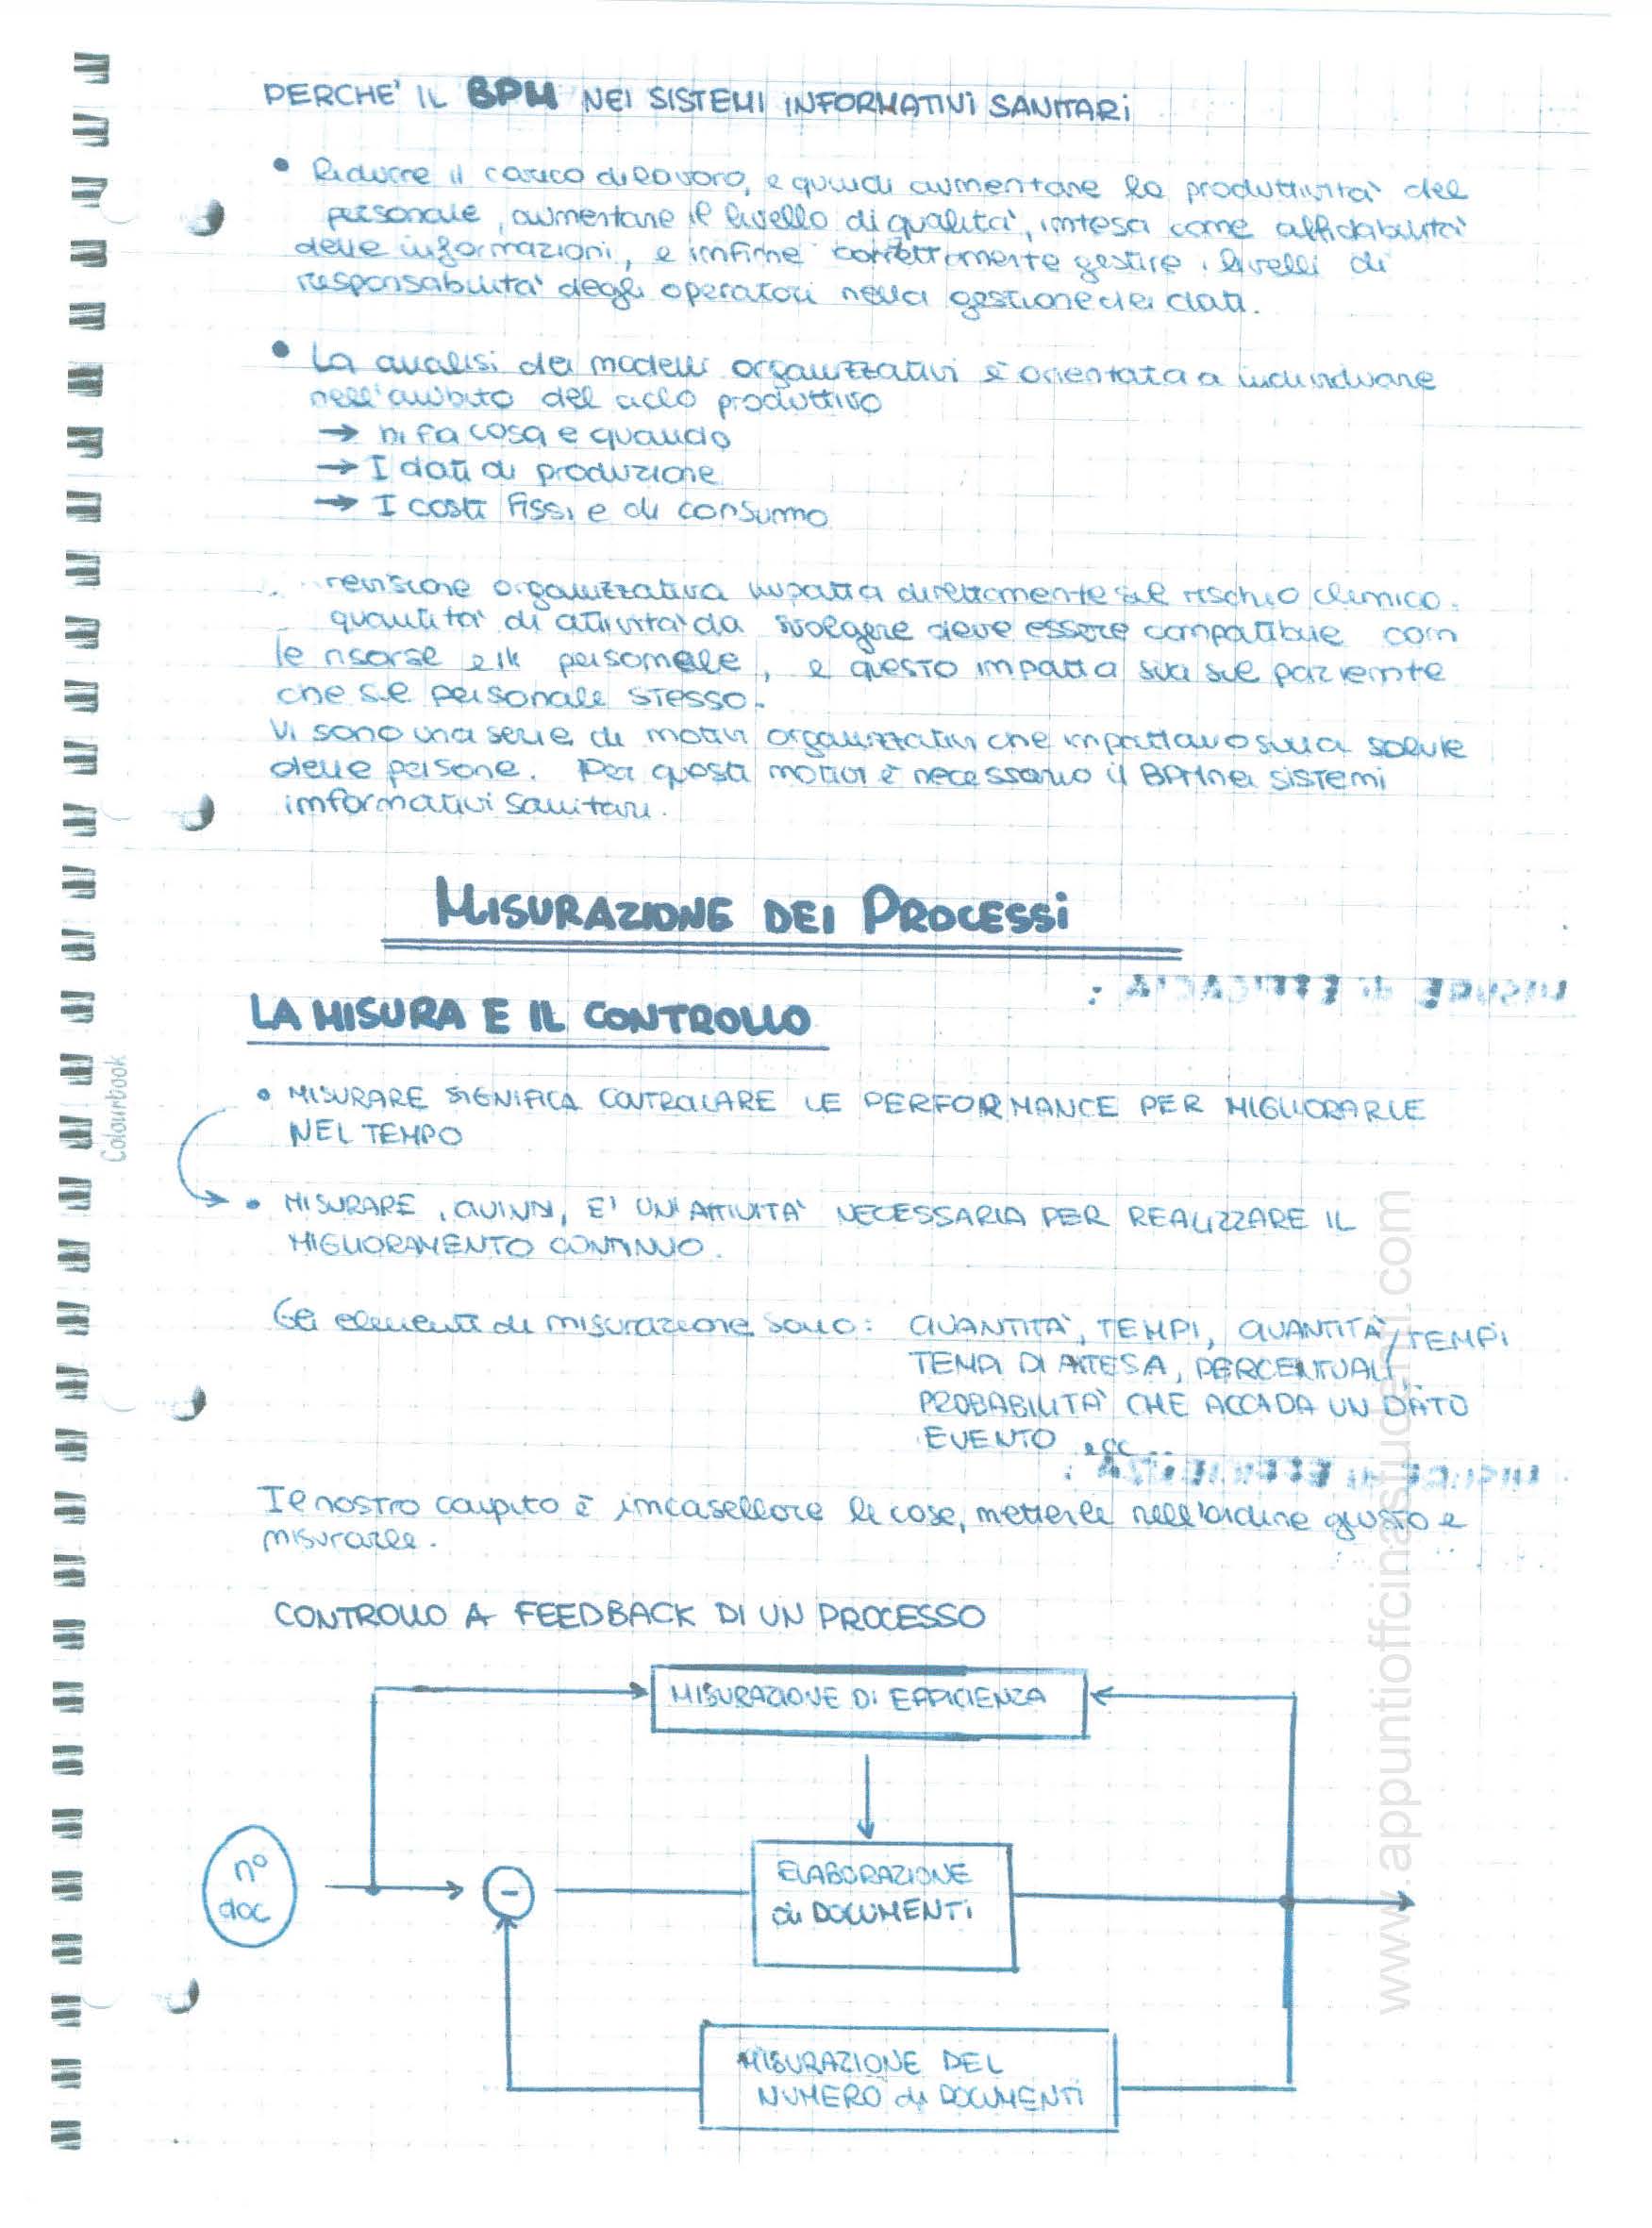 PERCHE' IL BPM NEI SISTEMI INFORMATIVI SANITARI
• Ridurre il carico di lavoro, e quindi aumentare la produttività del
personale, aumentare il livello di qualità, intesa come affidabilità
delle informazioni, e infine correttamente gestire i livelli di
responsabilità degli operatori nella gestione dei dati.
• La analisi dei modelli organizzativi è orientata a individuare
nell'ambito del ciclo produttivo
→ hi fa cosa e quando
→ I dati di produzione
→ I costi fissi e di consumo
revisione organizzativa impatta direttamente sul rischio clinico.
quantità di attività da svolgere deve essere compatibile con
le risorse e il personale, e questo impatta sia sul paziente
che sul personale stesso.
Vi sono una serie di motivi organizzativi che impattano sulla salute
delle persone. Per questi motivi è necessario il BPM nei sistemi
informativi sanitari.
MISURAZIONE DEI PROCESSI
MISURE di EFFICACIA :
LA MISURA E IL CONTROLLO
• MISURARE SIGNIFICA CONTROLLARE LE PERFORMANCE PER MIGLIORARLE
NEL TEMPO
• MISURARE, QUINDI, E' UN'ATTIVITA' NECESSARIA PER REALIZZARE IL
MIGLIORAMENTO CONTINUO.
Gli elementi di misurazione sono: QUANTITA', TEMPI, QUANTITA'/TEMPI
TEMPI DI ATTESA, PERCENTUALI,
PROBABILITA' CHE ACCADA UN DATO
EVENTO ecc...
MISURE di EFFICIENZA :
Il nostro compito è incasellare le cose, metterle nell'ordine giusto e
misurarle.
CONTROLLO A FEEDBACK DI UN PROCESSO
MISURAZIONE DI EFFICIENZA
n° doc
-
ELABORAZIONE
di DOCUMENTI
MISURAZIONE DEL
NUMERO di DOCUMENTI
Colourbook
www.appuntiofficinastudenti.com